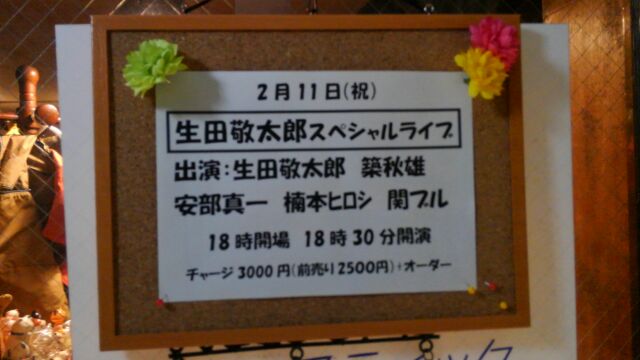 2月11日(祝)
生田敬太郎スペシャルライブ
出演:生田敬太郎 築秋雄
安部真一 楠本ヒロシ 関ブル
18時開場 18時30分開演
チャージ3000円(前売り2500円)+オーダー